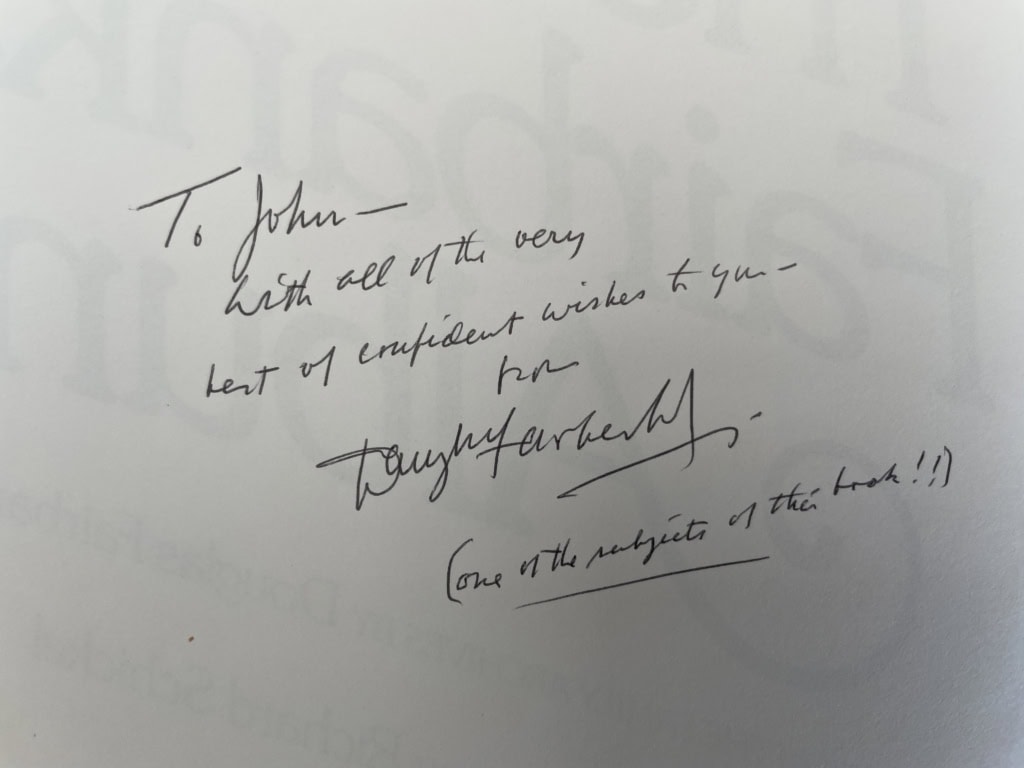 To John —
With all of the very
best of confident wishes to you —
from
Douglas Fairbanks Jr.
(one of the subjects of this book!!)